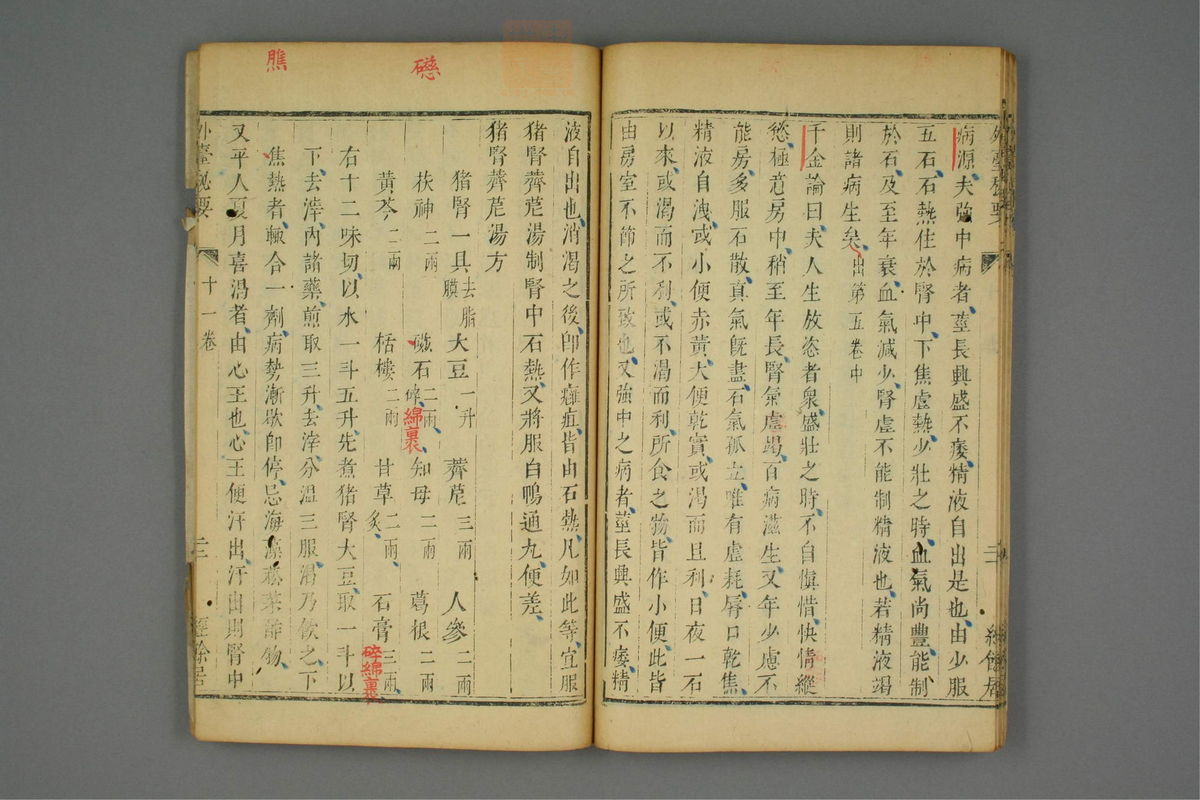 病源夫強中病者莖長興盛不痿精液自出是也由少服
五石石熱住於腎中下焦虛熱少壯之時血氣尚豐能制
於石及至年衰血氣減少腎虛不能制精液也若精液竭
則諸病生矣出第五卷中
千金論曰夫人生放恣者衆盛壯之時不自慎惜快情縱
慾極意房中稍至年長腎氣虛竭百病滋生又年少慮不
能房多服石散真氣旣盡石氣孤立唯有虛耗脣口乾焦
精液自洩或小便赤黃大便乾實或渴而且利日夜一石
以來或渴而不利或不渴而利所食之物皆作小便此皆
由房室不節之所致也又強中之病者莖長興盛不痿精
膲
礠
液自出也消渴之後卽作癰疽皆由石熱凡如此等宜服
猪腎薺苨湯制腎中石熱又將服白鴨通丸便差
猪腎薺苨湯方
猪腎一具去脂膜 大豆一升 薺苨三兩 人參二兩
茯神二兩 磁石二兩碎綿裹 知母二兩 葛根二兩
黃芩二兩 栝樓二兩 甘草二兩炙 石膏三兩碎綿裹
右十二味切以水一斗五升先煮猪腎大豆取一斗以
下去滓內諸藥煎取三升去滓分溫三服渴乃飲之下
焦熱者輙合一劑病勢漸歇卽停忌海藻菘菜酢物
又平人夏月喜渴者由心王也心王便汗出汗出則腎中
外臺秘要 十一卷 二十 經餘居